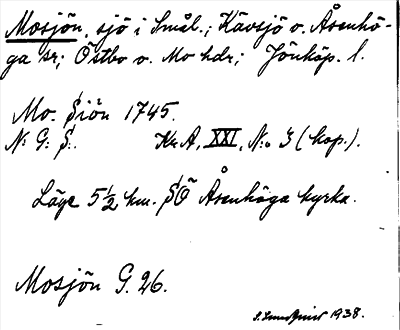 Mosjön, sjö i Smål.; Kävsjö o. Åsenhö-
ga sr; Östbo o. Mo hdr; Jönköp. l.
Mo. Siön 1745.
N: G: S:. Kr. A, XXI, N:o 3 (kop.).
Läge 5½ km. SÖ Åsenhöga kyrka.
Mosjön G. 26.
1938.